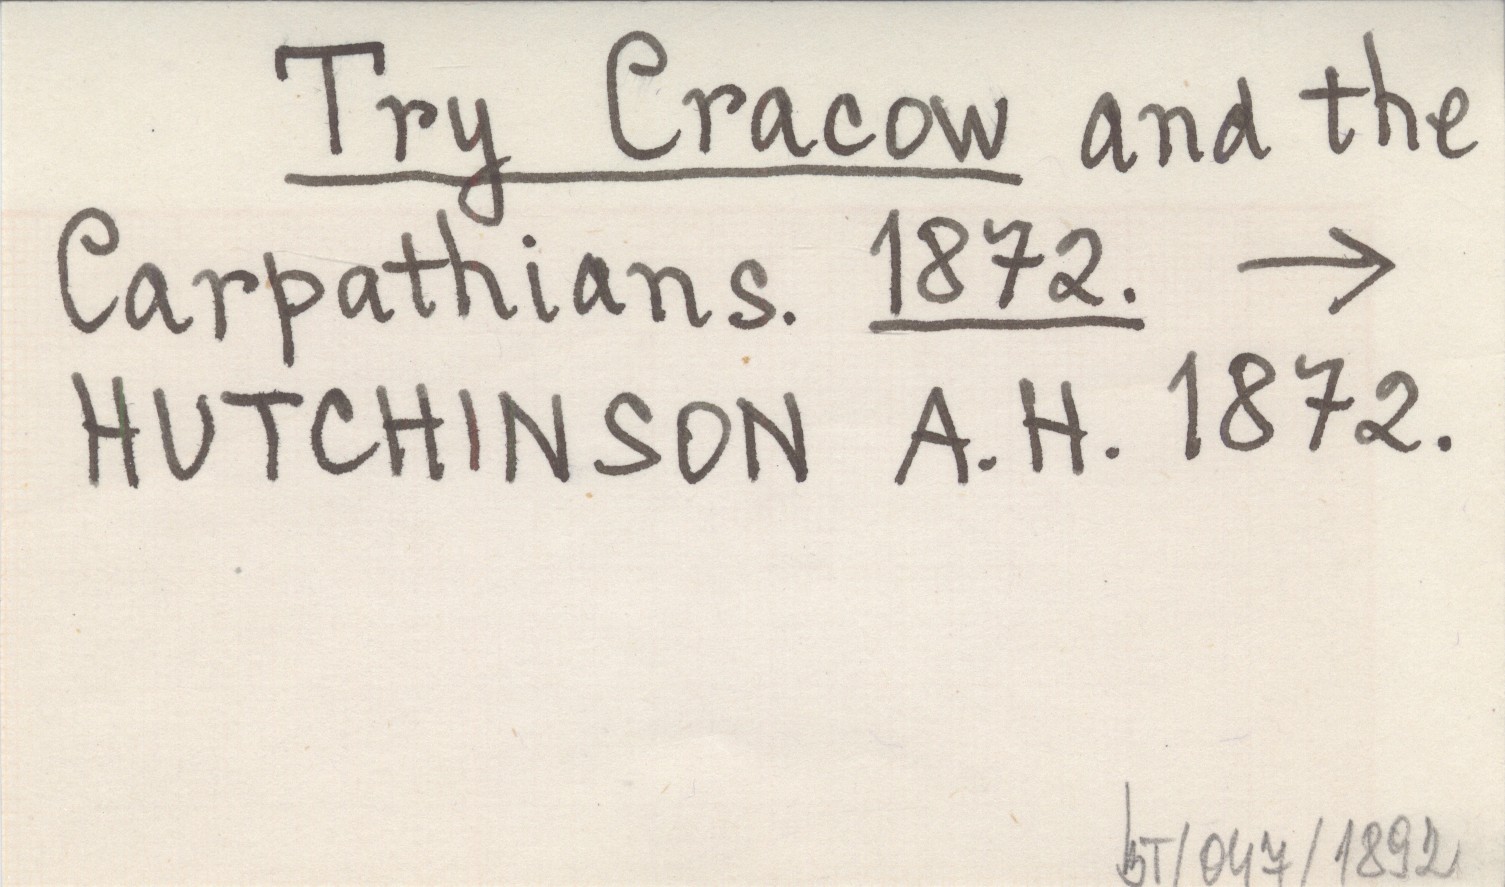 Try Cracow and the
Carpathians. 1872. →
HUTCHINSON A.H. 1872.
bT/047/1892